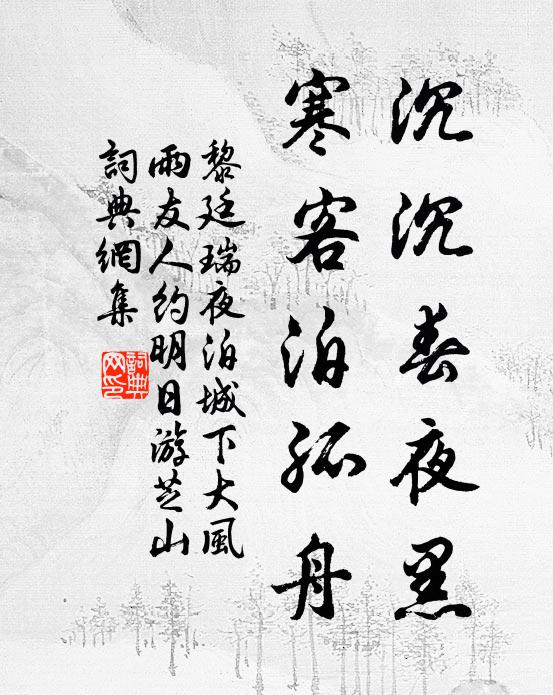 沉沉春夜黑
寒客泊孤舟
黎廷瑞夜泊城下大風
雨友人約明日游芝山
詞典網集
詞典網印